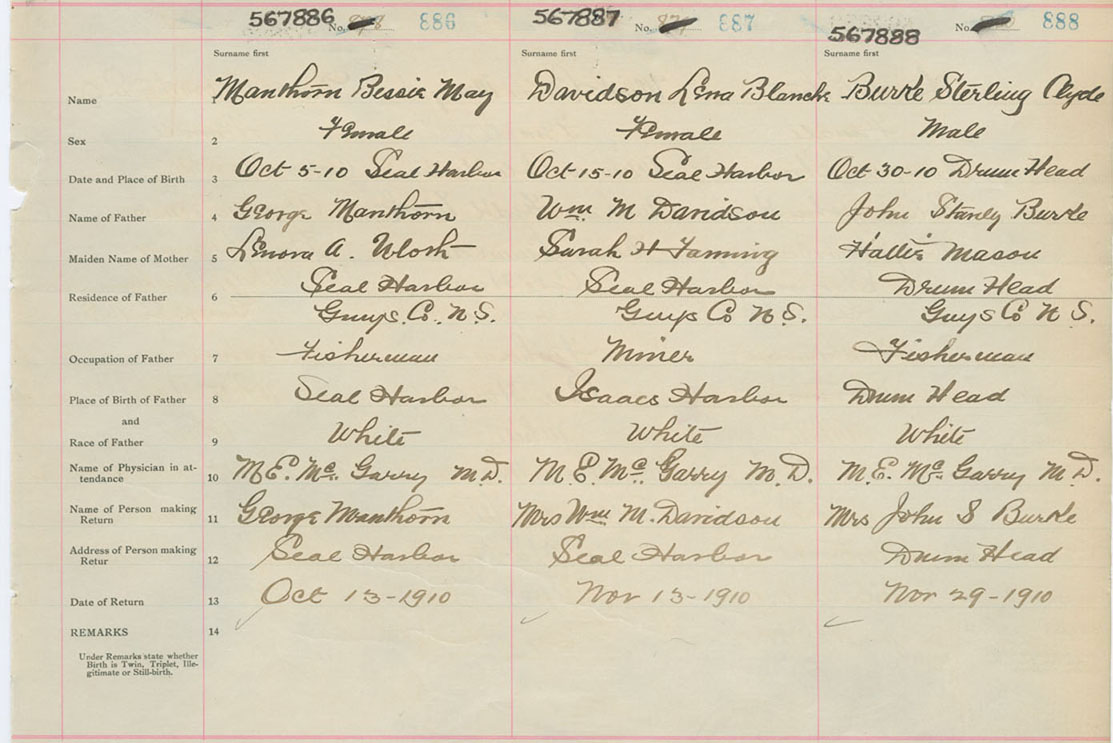 567886 No. 886 567887 No. 887 567888 No. 888
Surname first Surname first Surname first
Name 1 Manthorn Bessie May Davidson Lena Blanche Burke Sterling Clyde
Sex 2 Female Female Male
Date and Place of Birth 3 Oct 5-10 Seal Harbor Oct 15-10 Seal Harbor Oct 30-10 Drum Head
Name of Father 4 George Manthorn Wm M Davidson John Stanly Burke
Maiden Name of Mother 5 Lenora A. Sarah H Fanning Hattie Mason
Residence of Father 6 Seal Harbor Seal Harbor Drum Head
Guys. Co. N.S. Guys Co N.S. Guys Co N.S.
Occupation of Father 7 Fisherman Miner Fisherman
Place of Birth of Father 8 Seal Harbor Isaacs Harbor Drum Head
and
Race of Father 9 White White White
Name of Physician in at-
tendance 10 M.E. Mc. Garry M.D. M.E. Mc Garry M.D. M.E. Mc Garry M.D.
Name of Person making
Return 11 George Manthorn Mrs Wm M. Davidson Mrs John S Burke
Address of Person making
Retur 12 Seal Harbor Seal Harbor Drum Head
Date of Return 13 Oct 13-1910 Nov 13-1910 Nov 29-1910
REMARKS 14
Under Remarks state whether
Birth is Twin, Triplet, Ille-
gitimate or Still-birth.